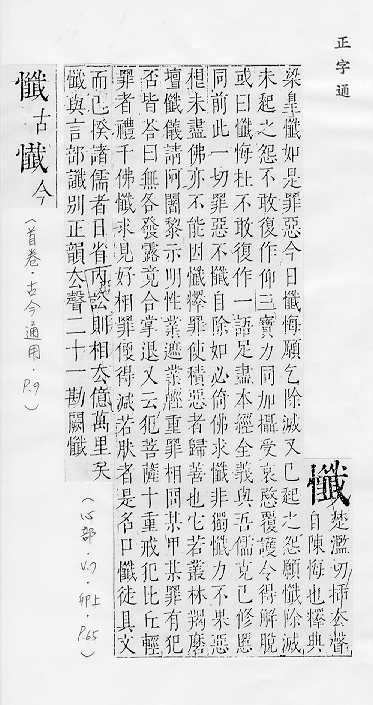 正字通
懺
楚濫切攙去聲
自陳悔也釋典
梁皇懺如是罪惡今日懺悔願乞除滅又已起之怨願懺除滅
未起之怨不敢復作仰三寶力同加攝受哀愍覆護令得解脫
或曰懺悔在不敢復作一語足盡本經全義與吾儒克己修慝
同前此一切罪惡不懺自除如必倚佛求懺非獨懺力不果惡
根未盡佛亦不能因懺釋罪使積惡者歸善也它若叢林羯磨
壇懺儀請阿闍黎示明性業遮業輕重罪相問某甲某罪有犯
否皆荅曰無各發露竟合掌退又云犯菩薩十重戒犯比丘輕
罪者禮千佛懺求見好相罪便得減若肰者是名口懺徒具文
而已揆諸儒者日省內訟則相去億萬里矣
懺與言部讖別正韻去聲二十一勘闕懺
懺古懴今
(首卷·古今通用·P.9)
(心部·V.7·卯上·P.65)